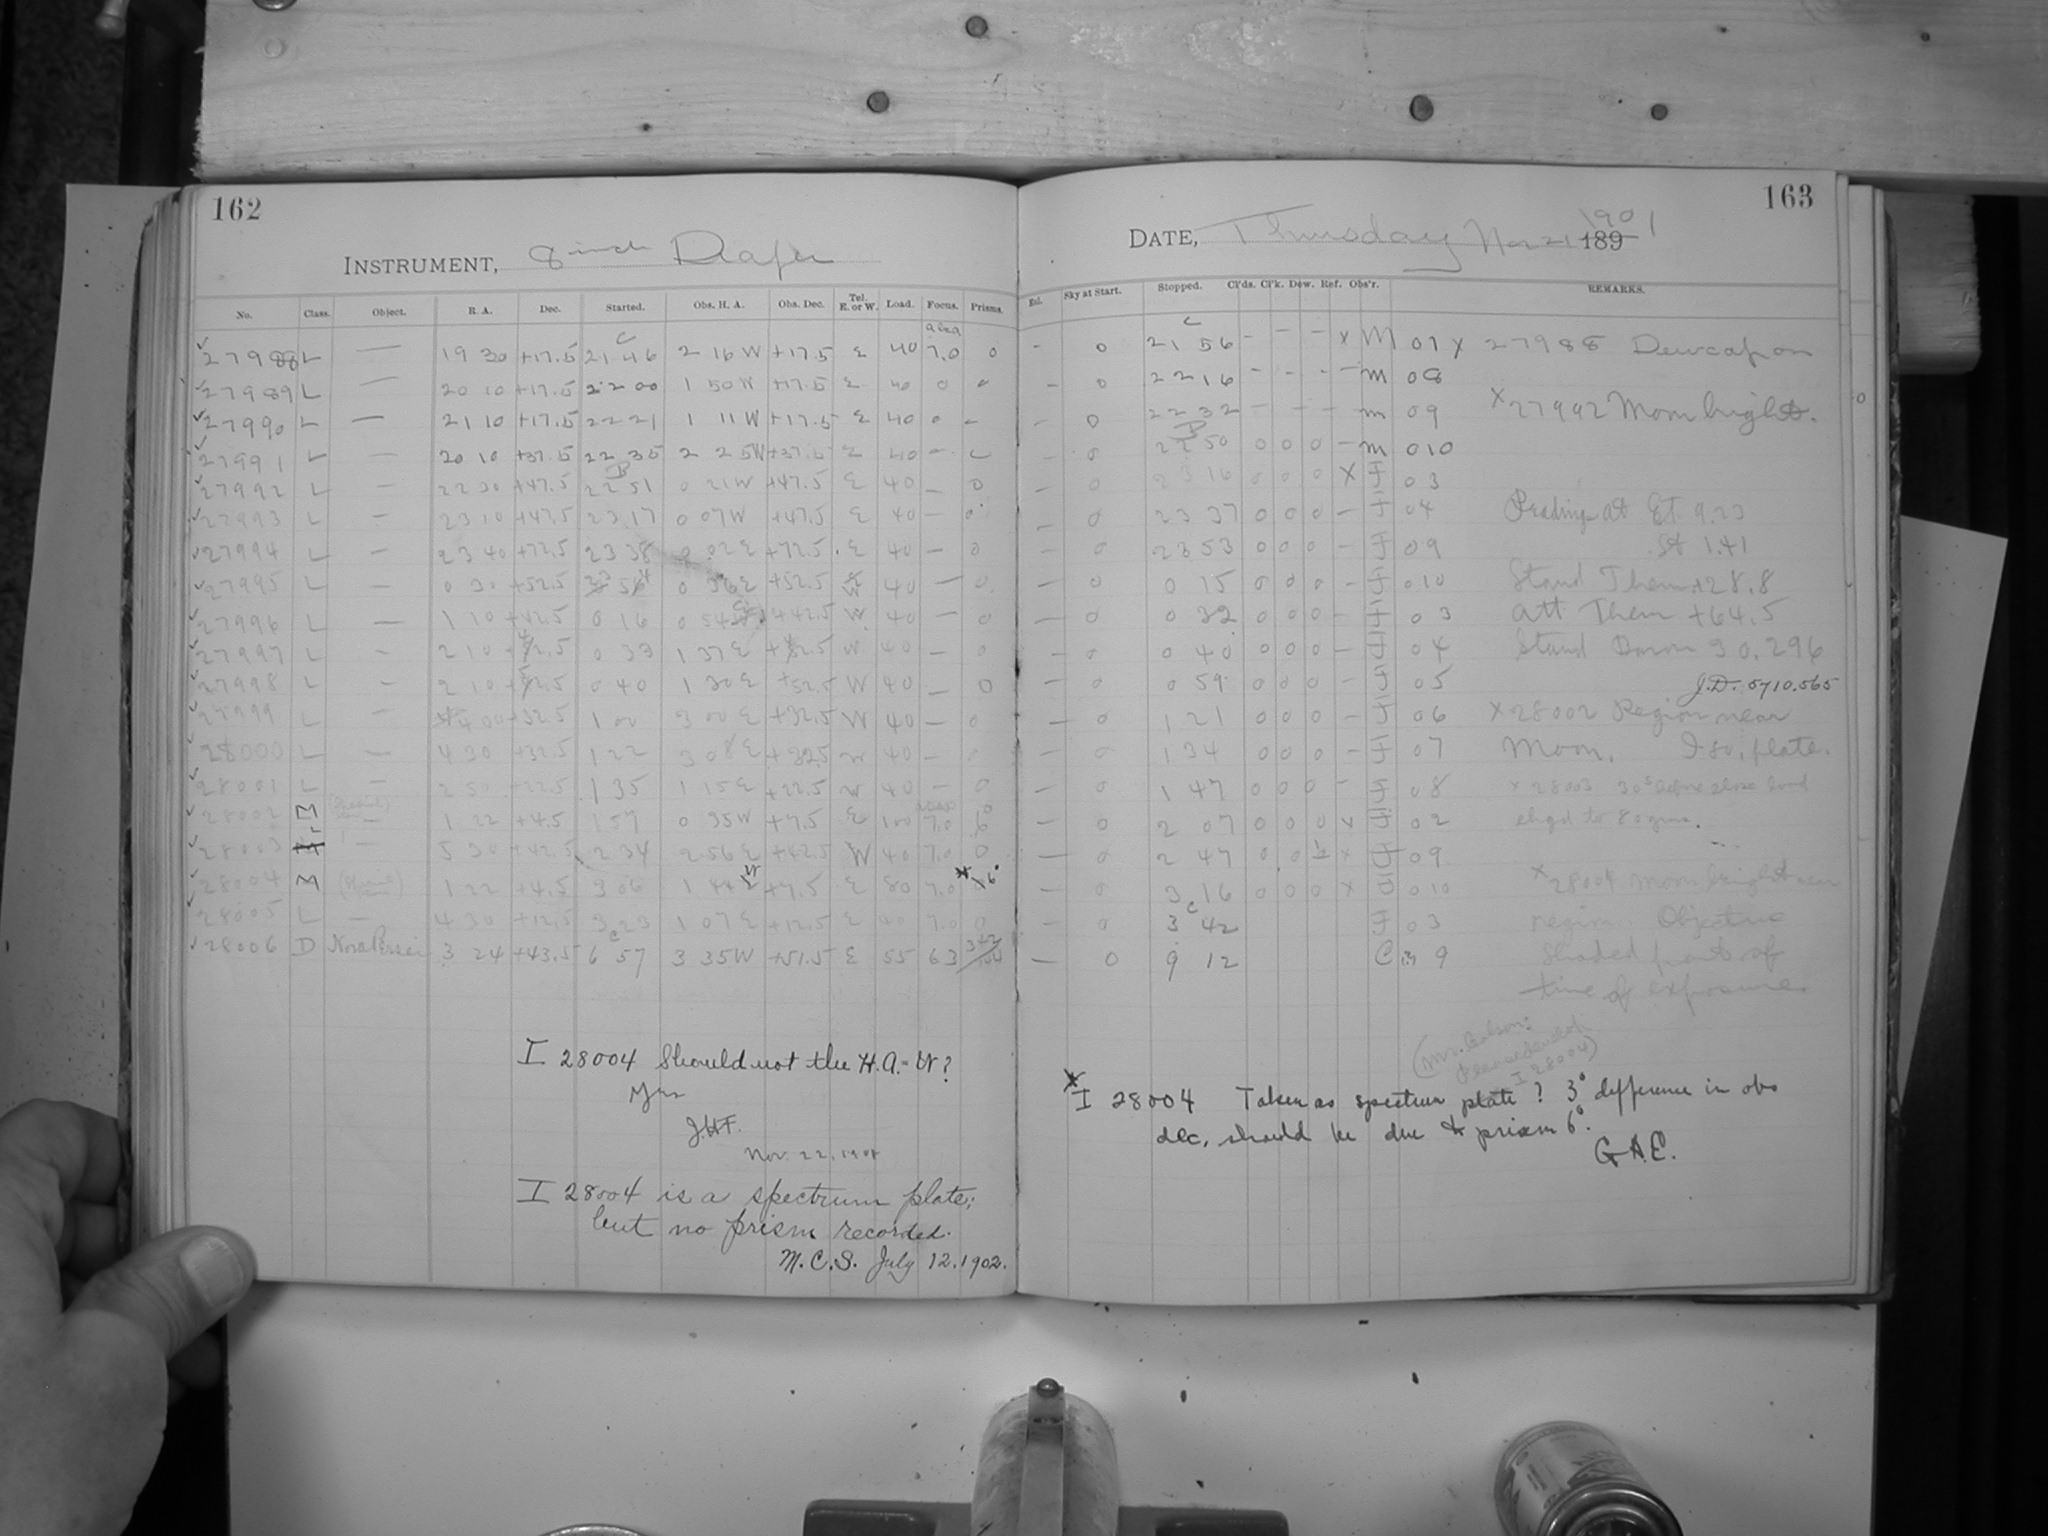 162
INSTRUMENT, 8 inch Draper
No. Class. Object. R. A. Dec. Started. Obs. H. A. Obs. Dec. Tel. E. or W. Load. Focus. Prisms.
27988 L — 19 30 +17.5 21 46 2 16 W +17.5 E 40 7.0 0
27989 L — 20 10 +17.5 22 00 1 50 W +17.5 E 40 0
27990 L — 21 10 +17.5 22 21 1 11 W +17.5 E 40
27991 L — 20 10 +37.5 22 35 2 25 W +37.5 E 40 —
27992 L — 22 30 +47.5 22 51 0 21 W +47.5 E 40 — 0
27993 L — 23 10 +47.5 23 17 0 07 W +47.5 E 40 — 0
27994 L — 23 40 +72.5 23 38 0 02 E +72.5 E 40 — 0
27995 L — 0 30 +52.5 23 54 0 36 E +52.5 W 40 — 0
27996 L — 1 10 +42.5 0 16 0 54 E +42.5 W 40 — 0
27997 L — 2 10 +42.5 0 33 1 37 E +42.5 W 40 — 0
27998 L — 2 10 +52.5 0 40 1 30 E +52.5 W 40 — 0
27999 L — 4 00 +32.5 1 00 3 00 E +32.5 W 40 — 0
28000 L — 4 30 +32.5 1 22 3 08 E +32.5 W 40 —
28001 L — 2 50 +22.5 1 35 1 15 E +22.5 W 40 — 0
28002 M — 1 22 +4.5 1 57 0 35 W +7.5 E 100 7.0 6°
28003 L — 5 30 +42.5 2 34 2 56 E +42.5 W 40 7.0 0
28004 M 1 22 +4.5 3 06 1 44 W +7.5 E 80 7.0 6°
28005 L — 4 30 +12.5 3 23 1 07 E +12.5 E 40 7.0 0
28006 D Nova Persei 3 24 +43.5 6 57 3 35 W +51.5 E 55 63
I 28004 Should not the H.A. = W?
Yes
J.H.F.
Nov. 22, 1901
I 28004 is a spectrum plate;
but no prism recorded.
M.C.S. July 12. 1902.
163
DATE, Thursday Nov 21 189 1901
Sky at Start. Stopped. Cl'ds. Cl'k. Dew. Ref. Obs'r. REMARKS.
— 0 21 56 — — — x M 07 x 27988 Dewcap on
— 0 22 16 — — — — M 08
— 0 22 32 — — — — M 09 x 27992 Moon bright.
— 0 22 50 0 0 0 — M 010
— 0 23 16 0 0 0 x F 03
— 0 23 37 0 0 0 — F 04 Readings at St. 9.23
— 0 23 53 0 0 0 — F 09 St 1.41
— 0 0 15 0 0 0 — F 010 Stand Therm +28.8
— 0 0 32 0 0 0 — F 03 Att Therm +64.5
— 0 0 40 0 0 0 — F 04 Stand Barom 30.296
— 0 0 59 0 0 0 — F 05 J.D. 5710.565
— 0 1 21 0 0 0 — F 06 x 28002 Region near
— 0 1 34 0 0 0 — F 07 Moon. plate.
— 0 1 47 0 0 0 — F 08 x 28003 30s before close load
— 0 2 07 0 0 0 x F 02 chgd to 80 gms.
— 0 2 47 0 0 x F 09
— 0 3 16 0 0 0 x F 010 x 28004 Moon bright near
— 0 3 42 F 03 region. Objective
— 0 9 12 C 9 shaded part of
time of exposure.
I 28004 Taken as spectrum plate? 3° difference in obs
dec. should be due to prism 6°.
G.A.E.